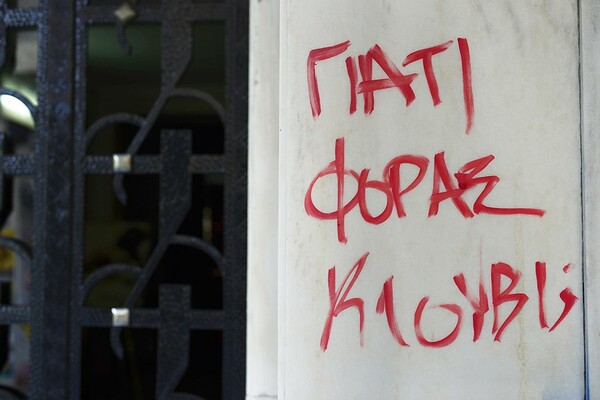 ΓΙΑΤΙ
ΦΟΡΑΣ
ΚΛΟΥΒΙ;